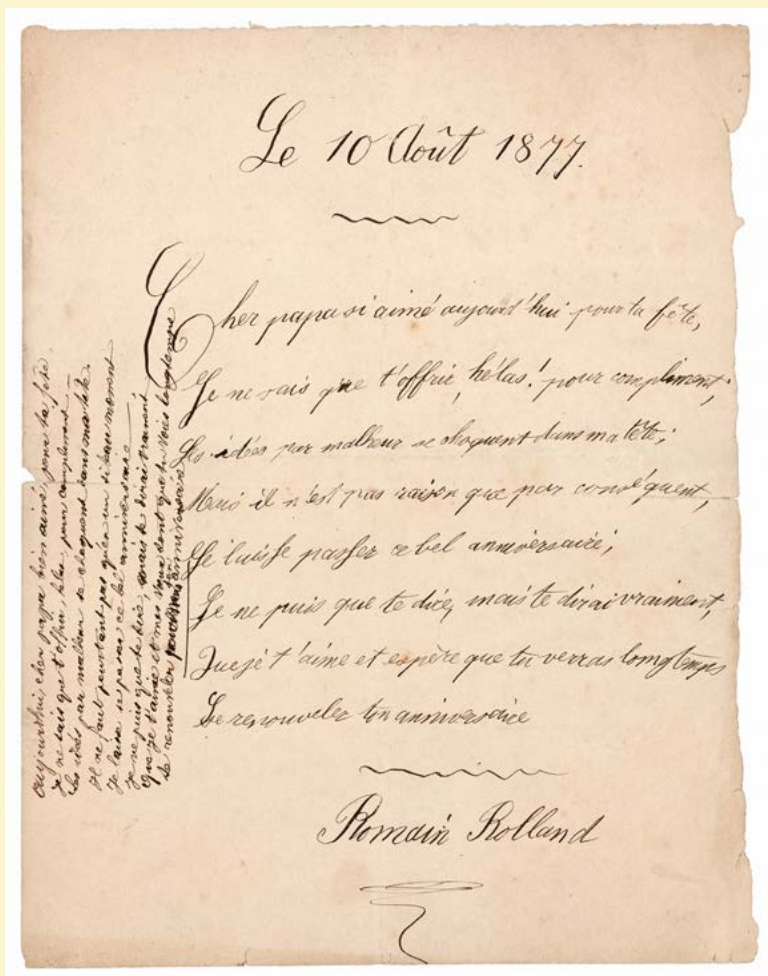 Le 10 Août 1877.
Cher papa si aimé aujourd'hui pour ta fête,
Je ne sais que t'offrir, hélas! pour compliment;
Les idées par malheur se choquent dans ma tête;
Mais il n'est pas raison que par conséquent,
Je laisse passer ce bel anniversaire;
Je ne puis que te dire, mais te dirai vraiment,
Que je t'aime et espère que tu verras longtemps
Se renouveler ton anniversaire
Romain Rolland
Aujourd'hui, cher papa bien aimé, pour ta fête
Je ne sais que t'offrir, hélas, pour compliment
Les idées par malheur se choquent dans ma tête
Il ne faut pourtant pas qu'en un si beau moment
Je laisse se passer ce bel anniversaire
Je ne puis que te dire, mais te dirai vraiment
Que je t'aime et mes vœux sont que tu voies longtemps
Se renouveler ton anniversaire